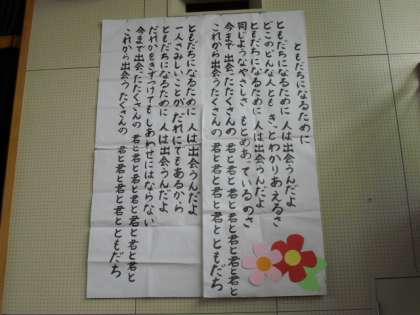 ともだちになるために
ともだちになるために 人は出会うんだよ
どこのどんな人とも きっとわかりあえるさ
ともだちになるために 人は出会うんだよ
同じようなやさしさ もとめあっているのさ
今まで出会ったたくさんの 君と君と君と君と君と君と君と
これから出会うたくさんの 君と君と君と君と ともだち
ともだちになるために 人は出会うんだよ
一人さみしいことが だれにでもあるから
ともだちになるために 人は出会うんだよ
だれかをきずつけても しあわせにはならない
今まで出会ったたくさんの 君と君と君と君と君と君と君と
これから出会うたくさんの 君と君と君と君と ともだち